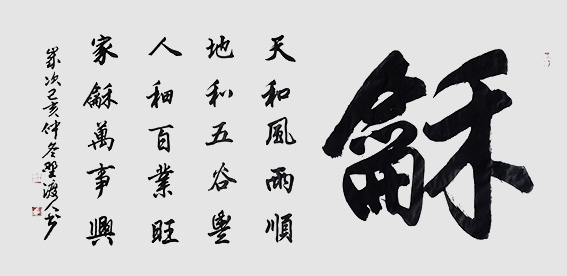 龢
天和風雨順
地利五谷豐
人和百業旺
家龢萬事興
歲次己亥仲冬野渡人書